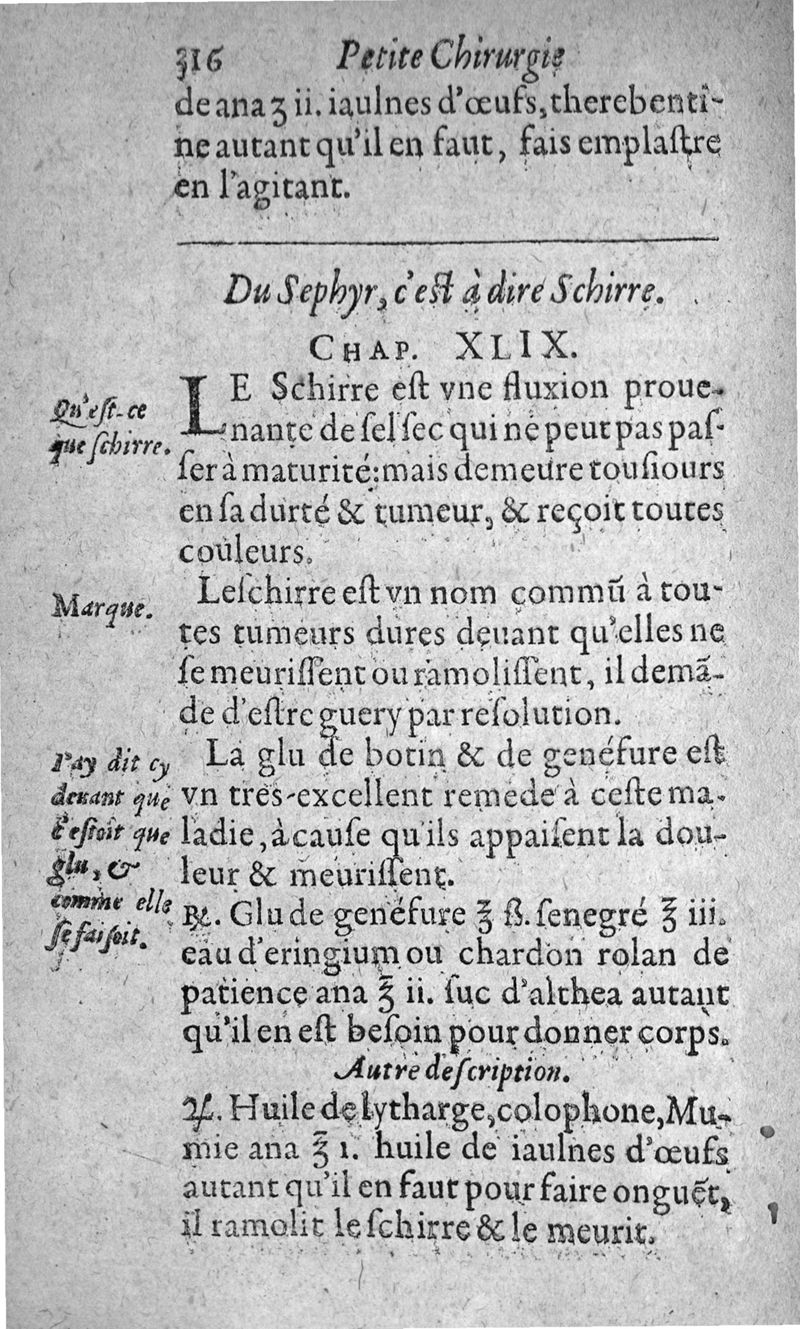 316 Petite Chirurgie
de ana ʒ ii. iaulnes d'œufs, therebenti-
ne autant qu'il en faut, fais emplaſtre
en l'agitant.
Du Sephyr, c'eſt à dire Schirre.
CHAP. XLIX.
Qu'eſt-ce
que ſchirre.
LE Schirre eſt vne fluxion proue-
nante de ſel ſec qui ne peut pas paſ-
ſer à maturité: mais demeure touſiours
en ſa durté & tumeur, & reçoit toutes
couleurs.
Marque.
Le ſchirre eſt vn nom commũ à tou-
tes tumeurs dures deuant qu'elles ne
ſe meuriſſent ou ramoliſſent, il demã-
de d'eſtre guery par reſolution.
I'ay dit cy
deuant que
c'eſtoit que
glu, &
comme elle
ſe faiſoit.
La glu de botin & de genéfure eſt
vn tres-excellent remede à ceſte ma-
ladie, à cauſe qu'ils appaiſent la dou-
leur & meuriſſent.
℞. Glu de genéfure ℥ ß. ſenegré ℥ iii.
eau d'eringium ou chardon rolan de
patience ana ℥ ii. ſuc d'althea autant
qu'il en eſt beſoin pour donner corps.
Autre deſcription.
♃. Huile de lytharge, colophone, Mu-
mie ana ℥ 1. huile de iaulnes d'œufs
autant qu'il en faut pour faire onguẽt,
il ramolit le ſchirre & le meurit.